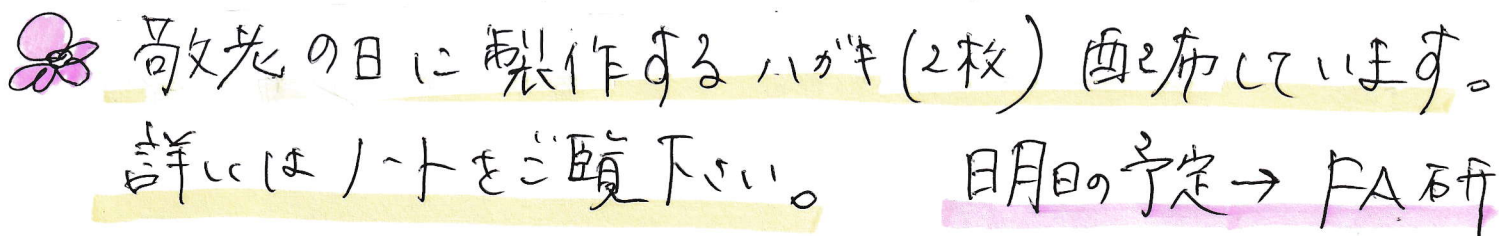 敬老の日に製作するハガキ(2枚)配布しています。
詳しくはノートをご覧下さい。 明日の予定→FA研